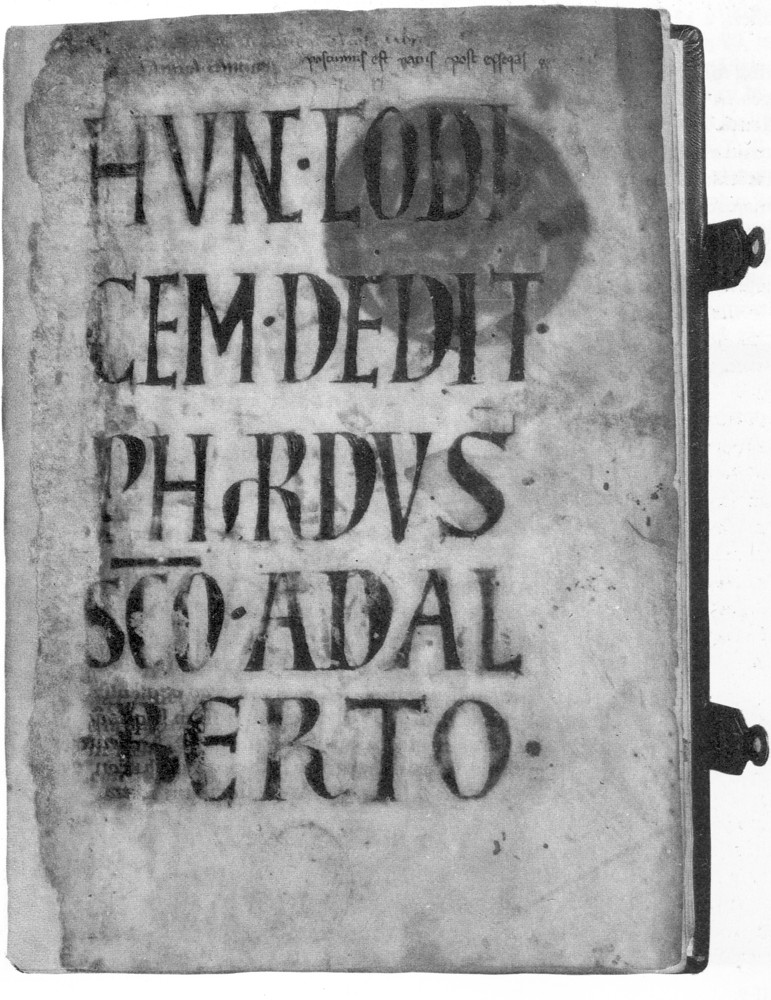 est post
HVNC·CODI
CEM·DEDIT·
PHIRDVS
SCO·ADAL
BERTO·